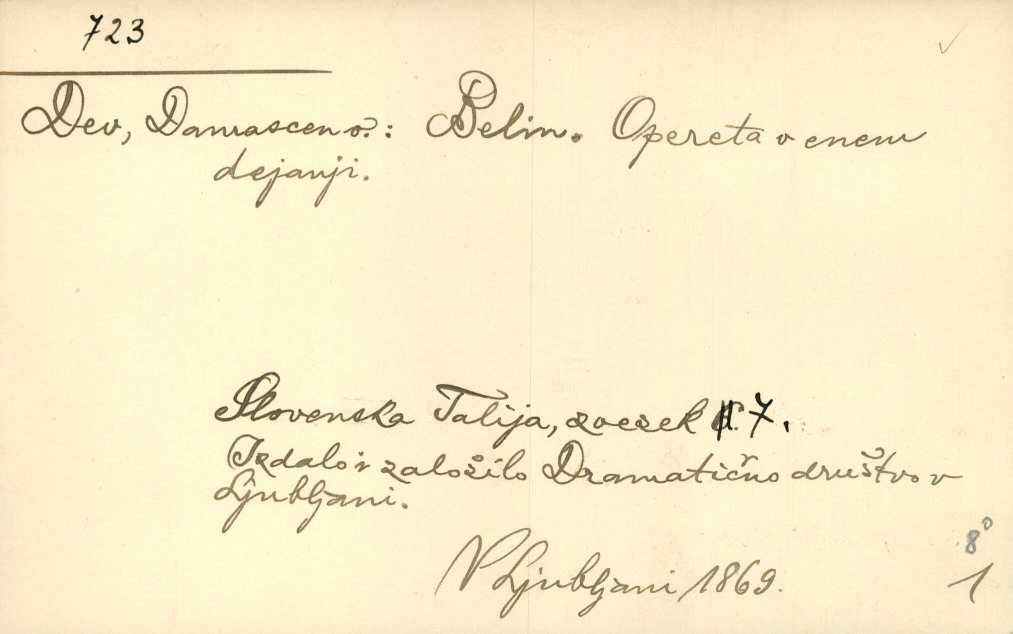 723
Dev, Damascen o.: Belin. Opereta v enem
dejanji.
Slovenska Talija, zvezek 7.
Izdalo i založilo Dramatično društvo v
Ljubljani.
V Ljubljani 1869.
8°
1